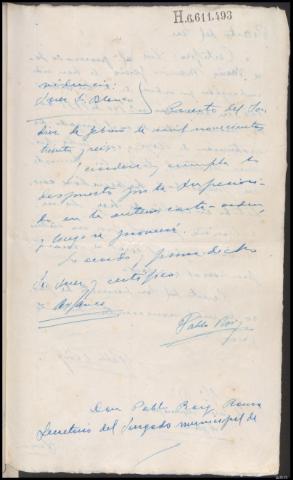 H.6.611.493
Providencia:
Juez Sr. Blanco
Puerto del Son
diez de febrero de mil novecientos
treinta y seis.
Guárdese y cumpla lo
dispuesto por la Superiori-
dad en la anterior carta-orden,
y luego se proveerá.
Lo acordó y firma dicho
Sr. Juez, y certifico.
Blanco
Pablo Roig
Don Pablo Roig
Secretario del Juzgado municipal de